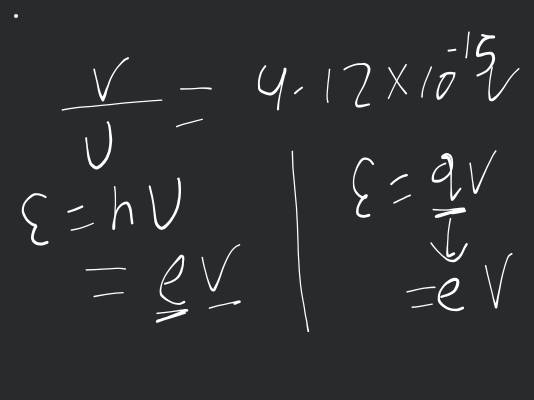 V/υ = 4.12×10^-15 V
ε = hυ
= eV
ε = qV
↓
= eV